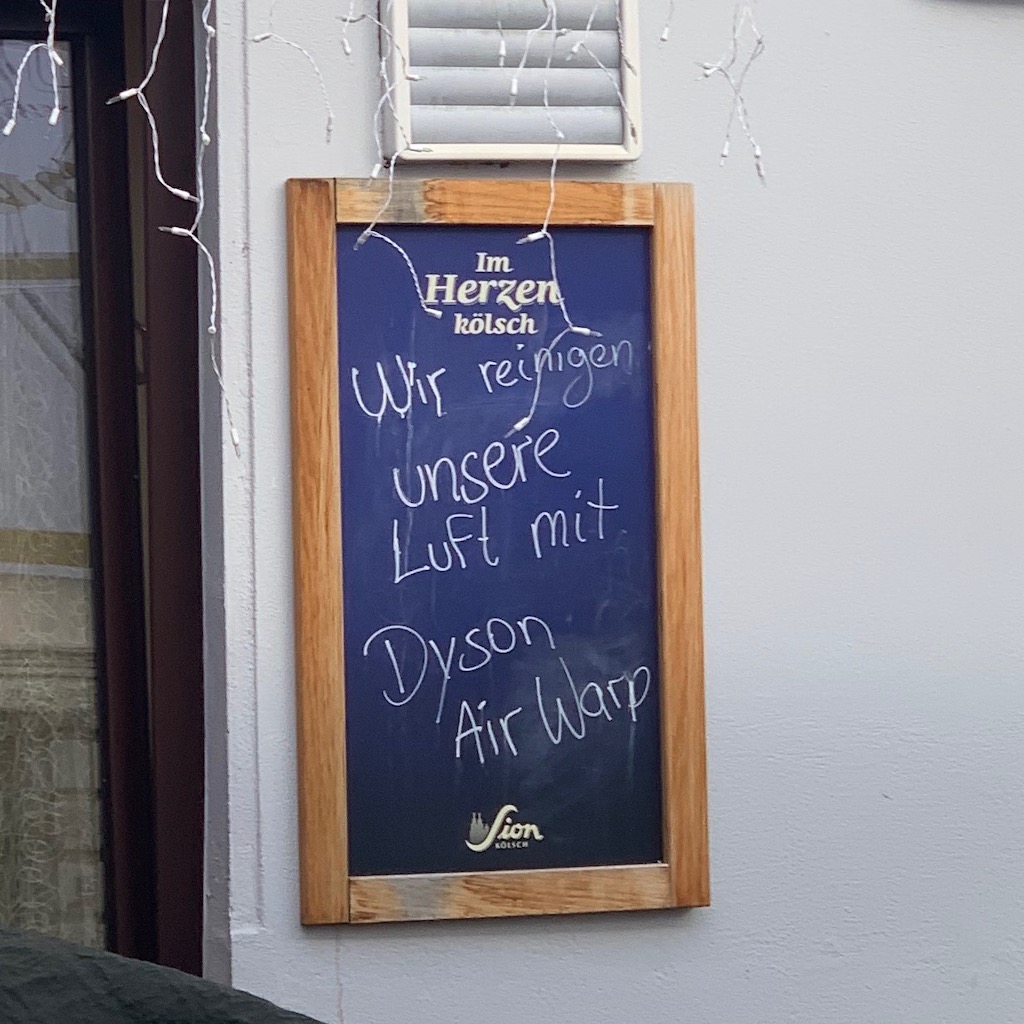 Im
Herzen
kölsch
Wir reinigen
unsere
Luft mit
Dyson
Air Warp
Sion
KÖLSCH